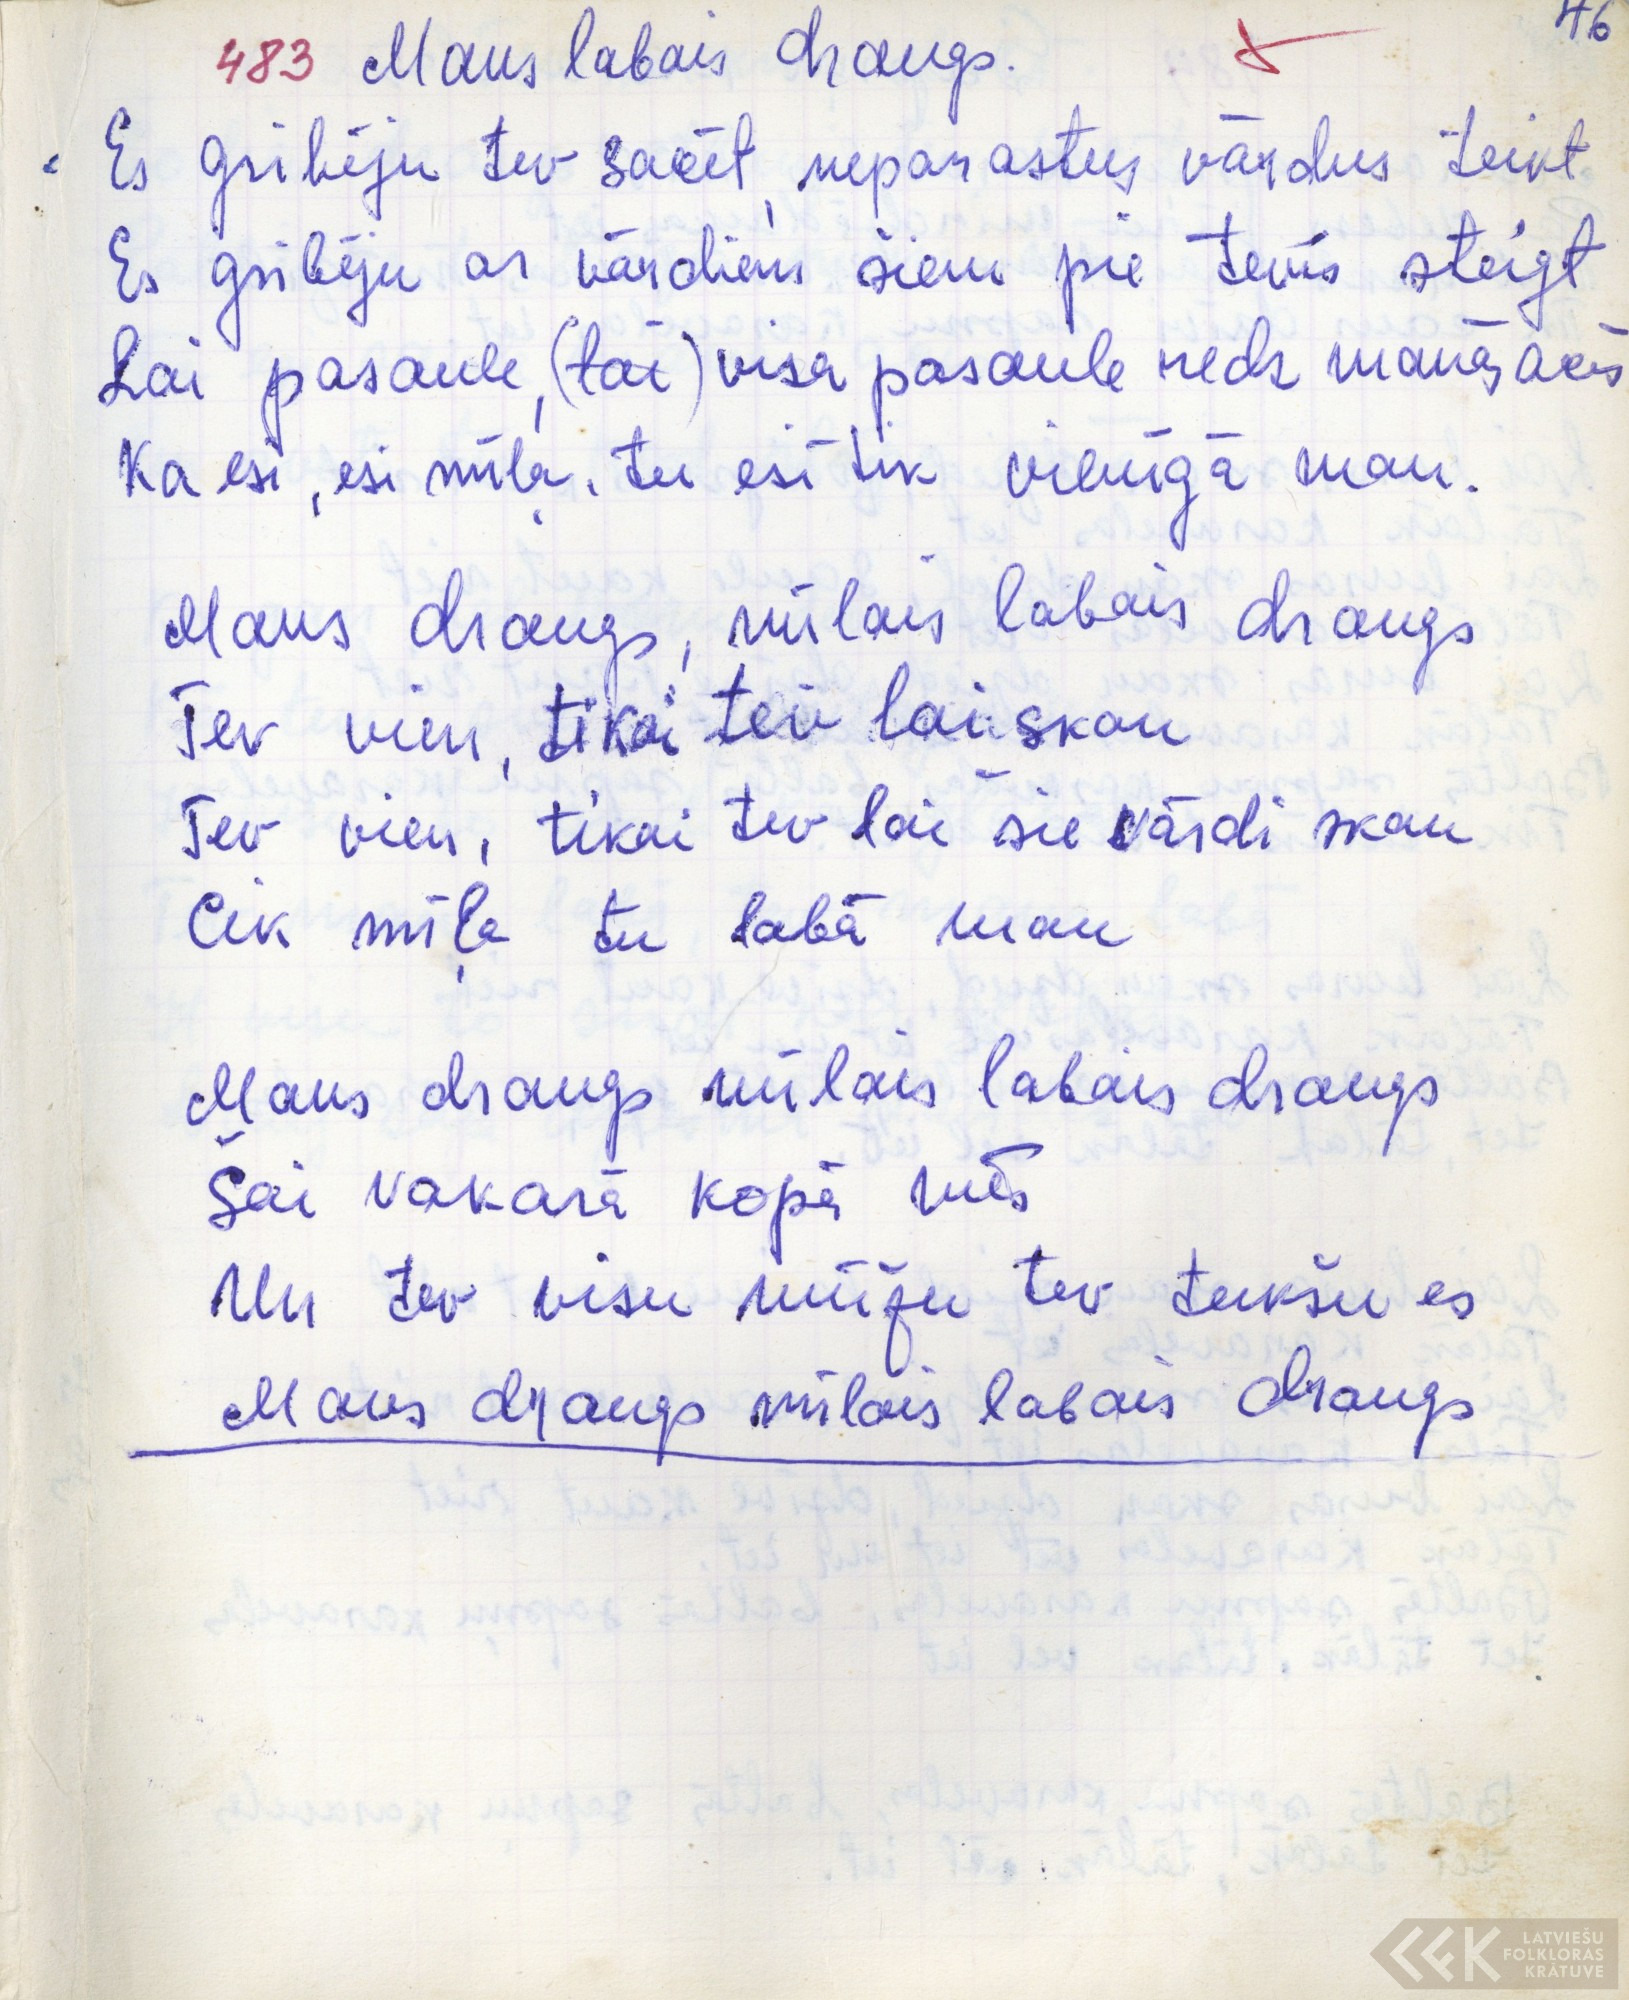 46
483 Mans labais draugs.
Es gribēju tev sacīt, neparastus vārdus teikt
Es gribēju ar vārdiem šiem pie tevis steigt
Lai pasaule, (lai) visa pasaule redz manās acīs
Ka esi, esi mīļa, tu esi tik vienīgā man.
Mans draugs, mīlais labais draugs
Tev vien, tikai tev lai skan
Tev vien, tikai tev lai šie vārdi skan
Cik mīļa tu labā man
Mans draugs mīlais labais draugs
Šai vakarā kopā mēs
Un tev visu mūžu tev tukšu es
Mans draugs mīlais labais draugs
LATVIEŠU
FOLKLORAS
KRĀTUVE